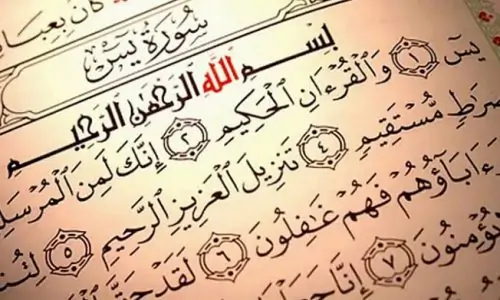 كَانَ بِعِبَا
سُورَةُ يسٓ
بِسْمِ ٱللَّهِ ٱلرَّحْمَٰنِ ٱلرَّحِيمِ
يسٓ ١ وَٱلْقُرْءَانِ ٱلْحَكِيمِ ٢ إِنَّكَ لَمِنَ ٱلْمُرْسَلِ
صِرَٰطٍ مُّسْتَقِيمٍ ٤ تَنزِيلَ ٱلْعَزِيزِ ٱلرَّحِيمِ ٥ لِتُن
ءَابَآؤُهُمْ فَهُمْ غَٰفِلُونَ ٦ لَقَدْ حَقَّ
يُؤْمِنُونَ ٧ إِنَّا جَعَ